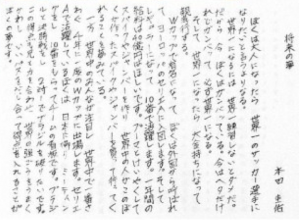 将来の夢
本田 圭佑
ぼくは大人になったら 世界一のサッカー選手に
なりたいと言うよりなる。
世界一になるには 世界一練習しないとダメだ。
だから 今 ぼくはガンバっている。今はヘタだけ
れどガンバって 必ず世界一になる。
そして 世界一になったら 大金持ちになって
親孝行する。
Wカップで有名になって ぼくは外国から呼ばれ
てヨーロッパのセリエAに入団します。そして
レギュラーになって 10番で活躍します。一年間の
給料は40億円はほしいです。プーマとけいやくして
スパイクやジャンバーを作り 世界中の人が このぼ
くが作ったスパイクやジャンバーを買って行ってく
れることを夢みている。
一方 世界中のみんなが注目し 世界中で一番さ
わぐ 4年に一度のWカップに出場します。セリエ
Aで活躍しているぼくは 日本に帰り ミーティン
グをし 10番をもらってチームの看板です。ブラジ
ルと決勝戦をし 2対1でブラジルを破りたいです。
この得点も兄と力を合わせ 世界の強ごうをうまくか
わし いいパスをだし合って得点を入れることが
ぼくの夢です。